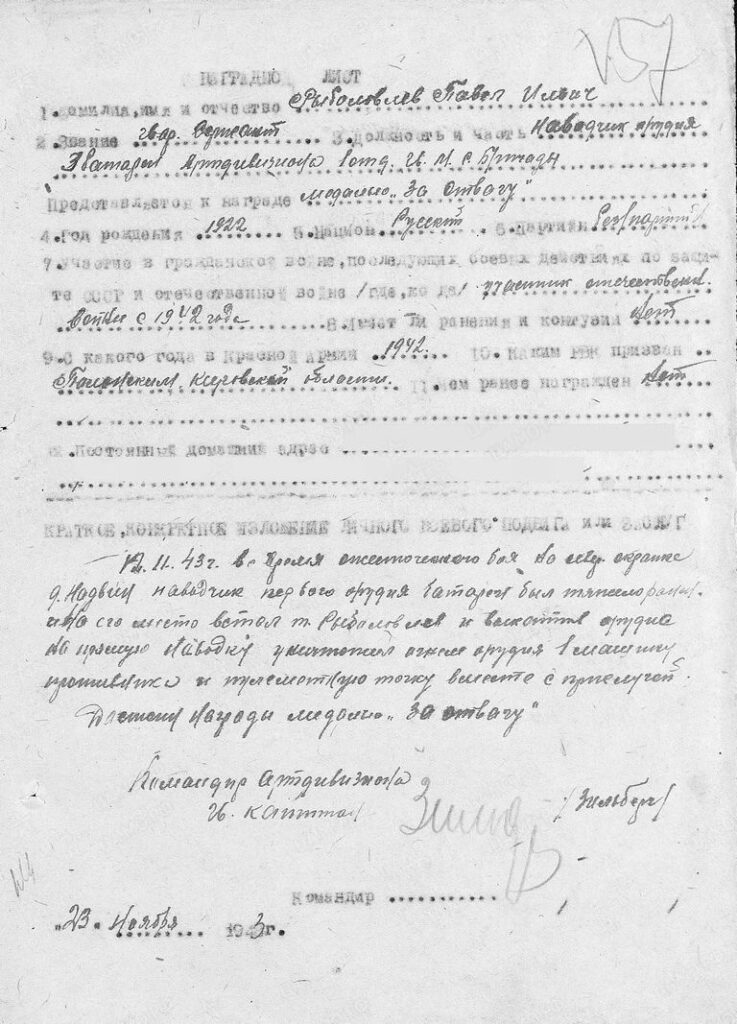 157
НАГРАДНОЙ ЛИСТ
1.Фамилия,имя и отчество Рыболовлев Павел Ильич
2.Звание гвар. Сержант 3.Должность и часть наводчик орудия
3 батареи Артдивизиона 1 отд. Гв. М. С. Бригады
Представляется к награде медалью „За отвагу"
4.Год рождения 1922 5.Национ. Русский 6.Партийн.
7.Участие в гражданской войне,последующих боевых действиях по защи-
те СССР и отечественной войне /где,когда/ участник отечествен.
войны с 1942 года 8.Имеет ли ранения и контузии Нет
9.С какого года в Красной Армии 1942. 10. Каким РВК призван
Кировской области. 11.Чем ранее награжден Нет
12.Постоянный домашний адрес
КРАТКОЕ,КОНКРЕТНОЕ ИЗЛОЖЕНИЕ ЛИЧНОГО БОЕВОГО ПОДВИГА ИЛИ ЗАСЛУГ
12.11.43г. во время ожесточеного боя на окраине
д. Надвин наводчик первого орудия батареи был тяжело ранен.
На его место встал т. Рыболовлев и выкатив орудие
на прямую наводку уничтожил огнем орудия 1 машину
противника и пулеметную точку вместе с прислугой.
Достоин Награды медалью „За отвагу"
Командир Артдивизиона
Гв. капитан /Зильберг/
Командир
„23" Ноября 1943г.